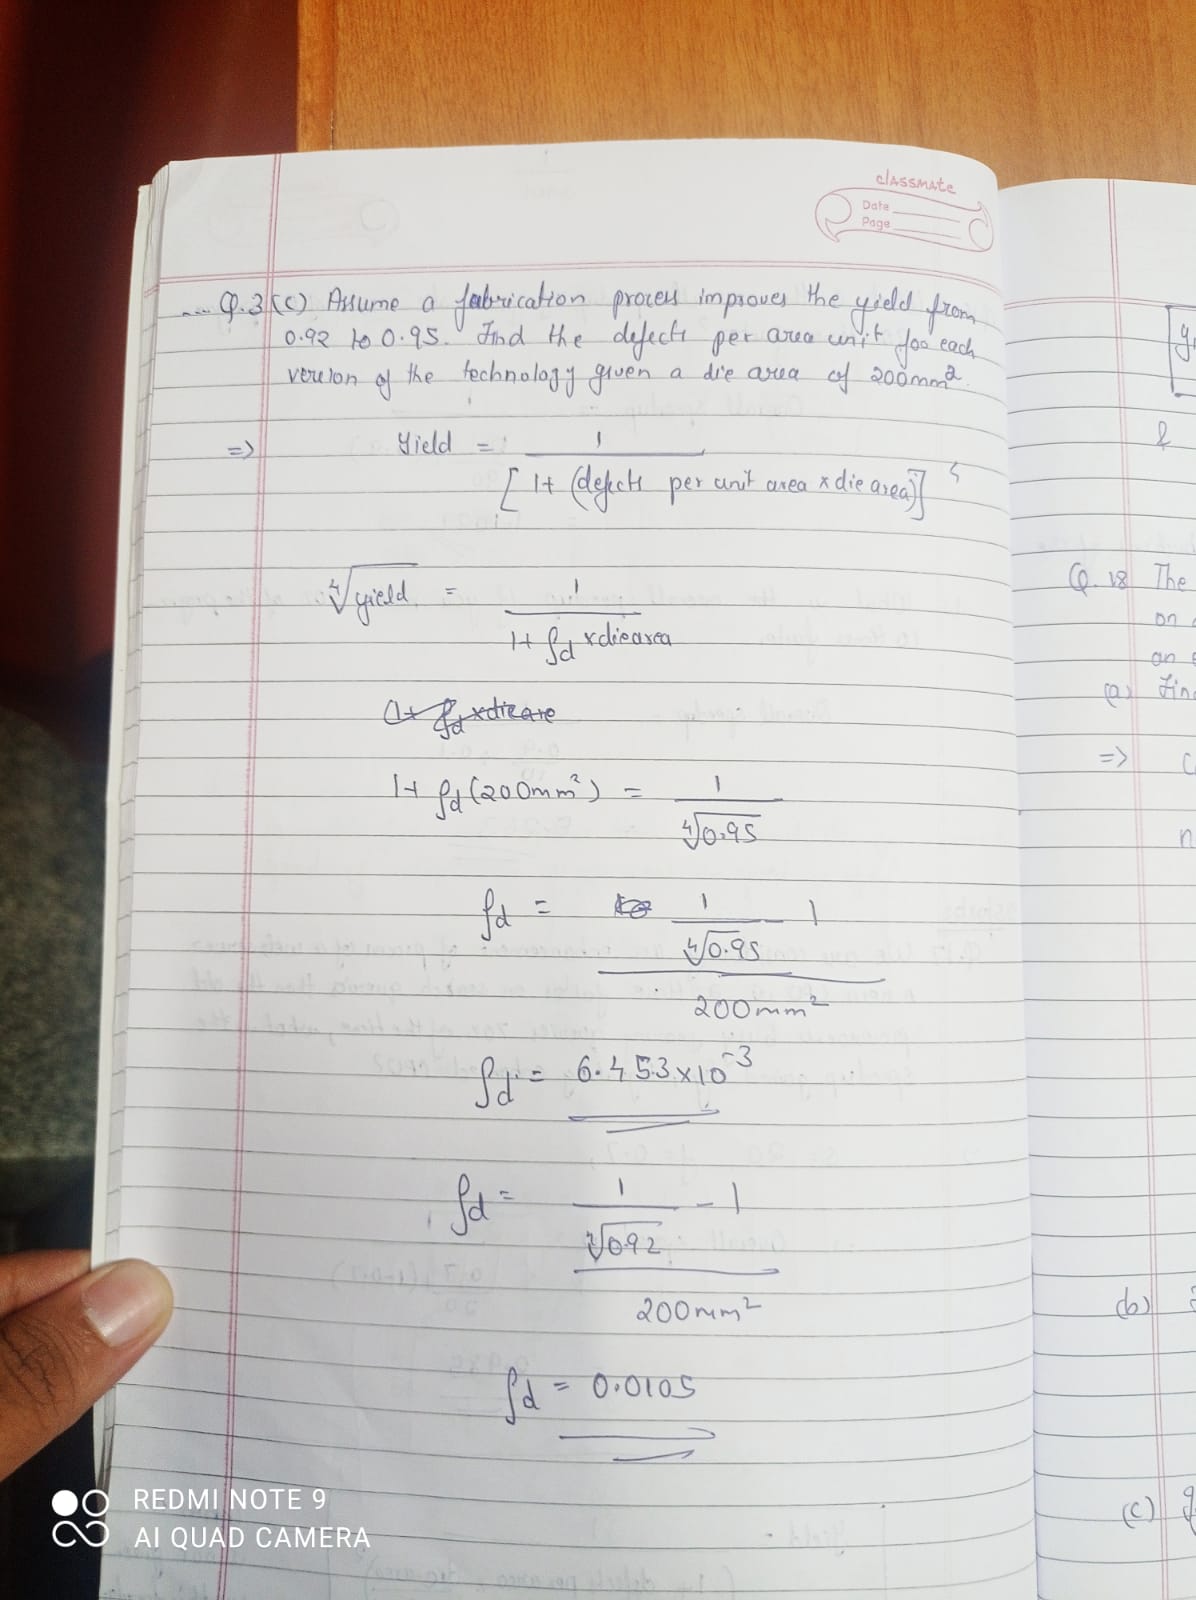 classmate
Date
Page
Q.3 (c) Assume a fabrication process improves the yield from
0.92 to 0.95. Find the defects per area unit for each
version of the technology given a die area of 200mm².
=> Yield = 1
[1+ (defects per unit area x die area)]⁴
∜yield = 1
1+ ρd x die area
1+ ρd x die are
1+ ρd (200mm²) = 1
∜0.95
ρd = 1 - 1
∜0.95
200mm²
ρd = 6.453x10⁻³
ρd = 1 - 1
∜0.92
200mm²
ρd = 0.0105
&
Q. 18 The
on
an
(a) Fin
=>
n
(b)
(c)
REDMI NOTE 9
AI QUAD CAMERA